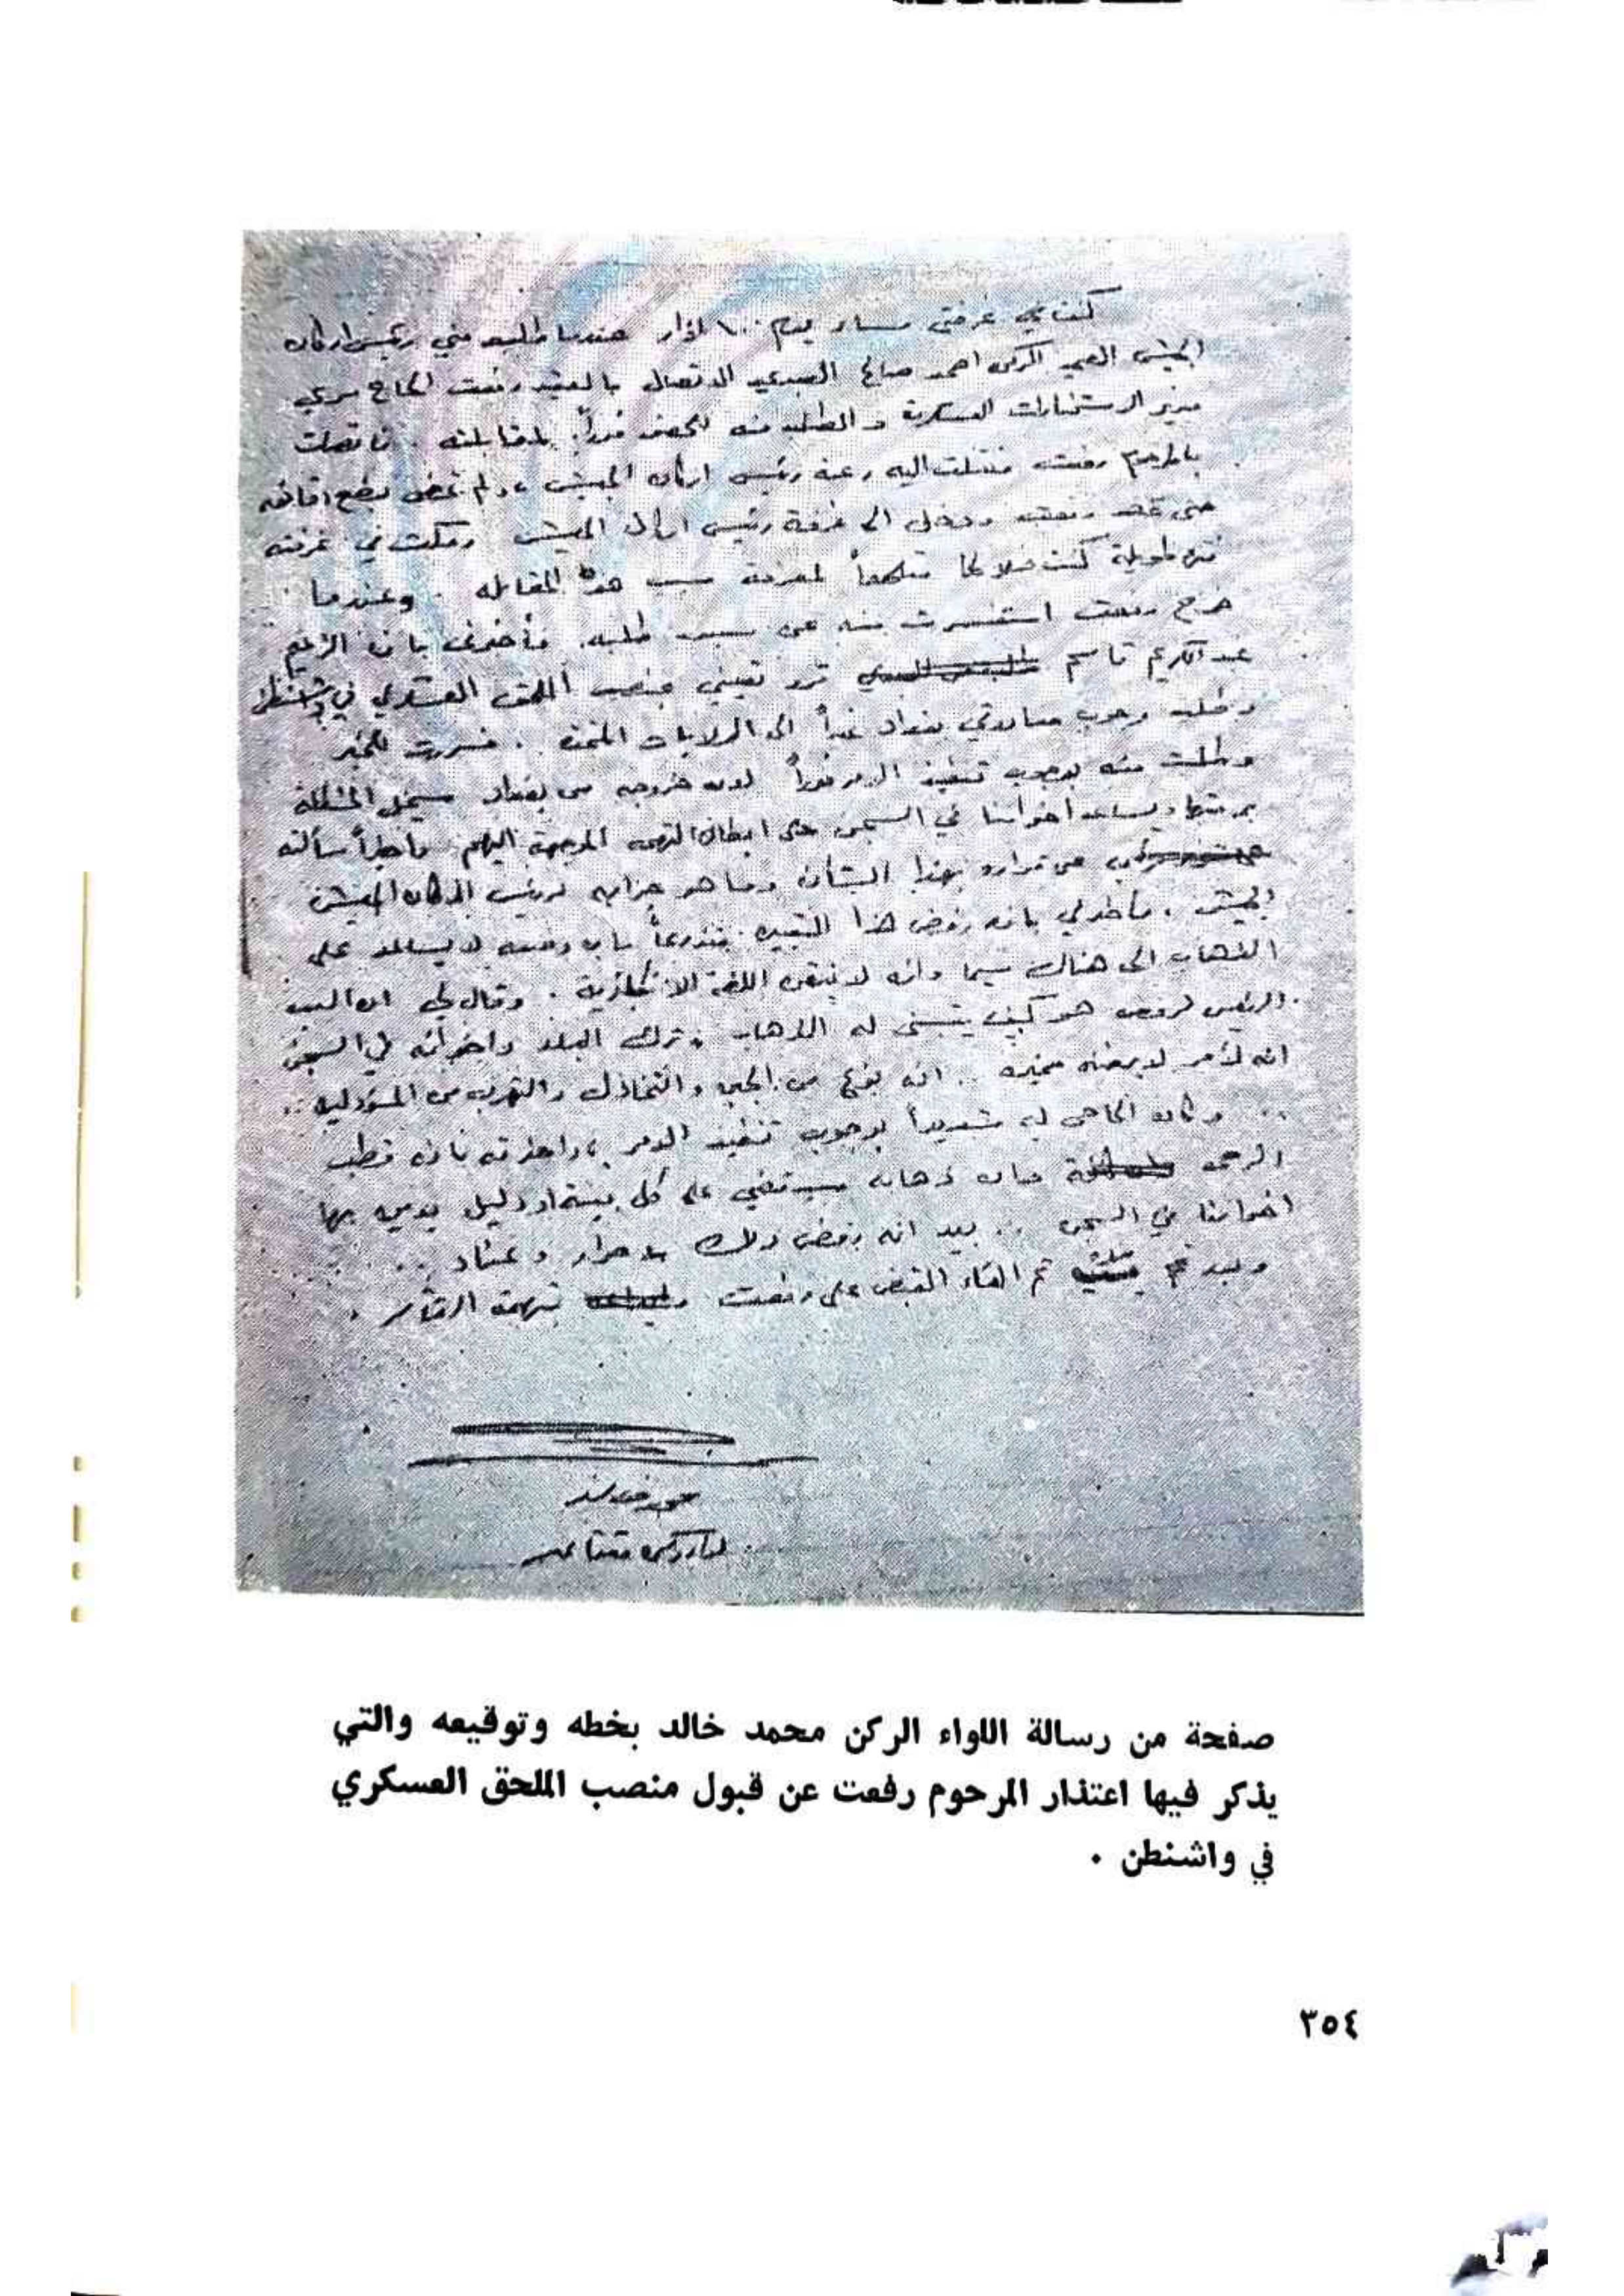 كنت في غرفتي مساء يوم ١٠٠ اذار عندما طلب مني رئيس اركان
الجيش العميد الركن احمد صالح العبدي الاتصال بالعقيد رفعت الحاج سري
مدير الاستخبارات العسكرية والطلب منه الحضور فوراً لمقابلته . فاتصلت
بالمرحوم رفعت فنقلت اليه رغبة رئيس اركان الجيش ، ولم تمض بضع دقائق
حتى رفعت ودخل الى غرفة رئيس اركان الجيش ومكث في غرفته
فترة طويلة كنت خلالها متلهفاً لمعرفة سبب هذه المقابلة . وعندما
خرج رفعت استفسرت منه عن سبب طلبه . فأخبرني بان الزعيم
عبد الكريم قاسم قرر تعييني بمنصب الملحق العسكري في واشنطن
وطلب وجوب مغادرتي بغداد غداً الى الولايات المتحدة . فسررت للخبر
وطلبت منه بوجوب تنفيذ الامر فوراً لان خروجه من بغداد سيحل المشكلة
برمتها ويساعد اخواننا في السجن على ابطال التهمة الموجهة اليهم واخيراً سألته
عن قراره بهذا الشأن وما هو جوابه لرئيس اركان الجيش
الجيش ، فأخبرني بانه رفض هذا التعيين متذرعاً بان وضعه لا يساعد على
الذهاب الى هناك سيما وانه لا يتقن اللغة الانكليزية . وقال لي ان السبب
الرئيس لرفضه هو كيف يتسنى له الذهاب وترك البلد واخوانه في السجن
انه لأمر لا يرضاه ضميره .. انه نوع من الجبن والتخاذل والتهرب من المسؤولية ..
.. وكان الحاحي له شديداً بوجوب تنفيذ الامر ،
ذهابه سيقضي على كل بينة او دليل يدين بها
اخواننا في السجن .. بيد انه رفض ذلك باصرار وعناد ..
تم القاء القبض على رفعت بتهمة التآمر .
صفحة من رسالة اللواء الركن محمد خالد بخطه وتوقيعه والتي
يذكر فيها اعتذار المرحوم رفعت عن قبول منصب الملحق العسكري
في واشنطن .
٣٥٤